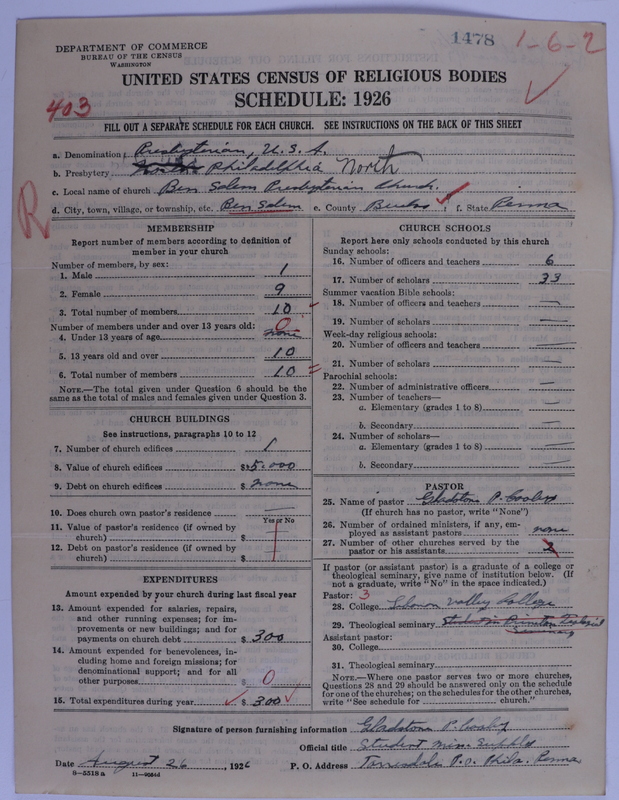 DEPARTMENT OF COMMERCE
BUREAU OF THE CENSUS
WASHINGTON
1478
1-6-2
UNITED STATES CENSUS OF RELIGIOUS BODIES
SCHEDULE: 1926
403
FILL OUT A SEPARATE SCHEDULE FOR EACH CHURCH. SEE INSTRUCTIONS ON THE BACK OF THIS SHEET
a. Denomination Presbyterian, U.S.A.
b. Presbytery Philadelphia North
c. Local name of church Ben Salem Presbyterian Church.
d. City, town, village, or township, etc. Ben Salem e. County Bucks f. State Penna
R
MEMBERSHIP
Report number of members according to definition of
member in your church
Number of members, by sex:
1. Male 1
2. Female 9
3. Total number of members 10
Number of members under and over 13 years old: 0
4. Under 13 years of age none
5. 13 years old and over 10
6. Total number of members 10
NOTE.—The total given under Question 6 should be the
same as the total of males and females given under Question 3.
CHURCH BUILDINGS
See instructions, paragraphs 10 to 12
7. Number of church edifices 1
8. Value of church edifices $5,000
9. Debt on church edifices $ none
10. Does church own pastor's residence —
Yes or No
11. Value of pastor's residence (if owned by
church) $
12. Debt on pastor's residence (if owned by
church) $
EXPENDITURES
Amount expended by your church during last fiscal year
13. Amount expended for salaries, repairs,
and other running expenses; for im-
provements or new buildings; and for
payments on church debt $ 300
14. Amount expended for benevolences, in-
cluding home and foreign missions; for
denominational support; and for all
other purposes $ 0
15. Total expenditures during year $ 300
CHURCH SCHOOLS
Report here only schools conducted by this church
Sunday schools:
16. Number of officers and teachers 6
17. Number of scholars 33
Summer vacation Bible schools:
18. Number of officers and teachers —
19. Number of scholars —
Week-day religious schools:
20. Number of officers and teachers —
21. Number of scholars —
Parochial schools:
22. Number of administrative officers —
23. Number of teachers—
a. Elementary (grades 1 to 8) —
b. Secondary —
24. Number of scholars—
a. Elementary (grades 1 to 8) —
b. Secondary —
PASTOR
25. Name of pastor Gladstone P. Cooley
(If church has no pastor, write "None")
26. Number of ordained ministers, if any, em-
ployed as assistant pastors none
27. Number of other churches served by the
pastor or his assistants
If pastor (or assistant pastor) is a graduate of a college or
theological seminary, give name of institution below. (If
not a graduate, write "No" in the space indicated.)
Pastor: 3
28. College Lebanon Valley College
29. Theological seminary Student in Princeton Theological
Seminary
Assistant pastor:
30. College
31. Theological seminary
NOTE.—Where one pastor serves two or more churches,
Questions 28 and 29 should be answered only on the schedule
for one of the churches; on the schedules for the other churches,
write "See schedule for church."
Signature of person furnishing information Gladstone P. Cooley
Official title Student Min. Supply
Date August 26, 1926 P. O. Address Torresdale P.O. Phila. Penna
8-5518 a 11-9664d